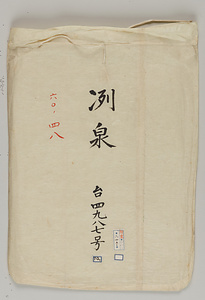 冽泉
台四九八七号
六〇、四八